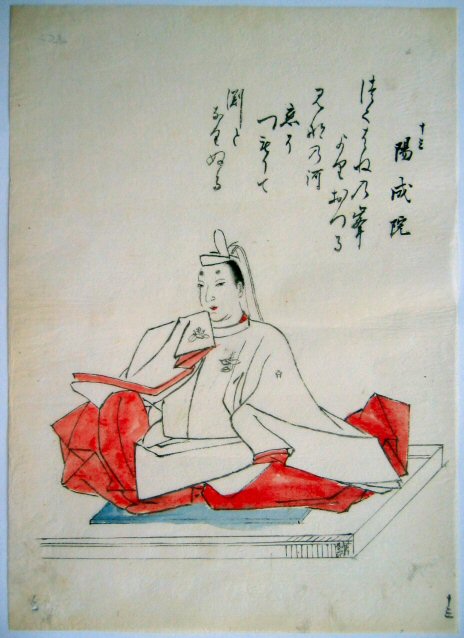 十三
陽成院
つくはね乃峯
よりおつる
みな乃河
恋そ
つもりて
淵と
なりぬる
十三